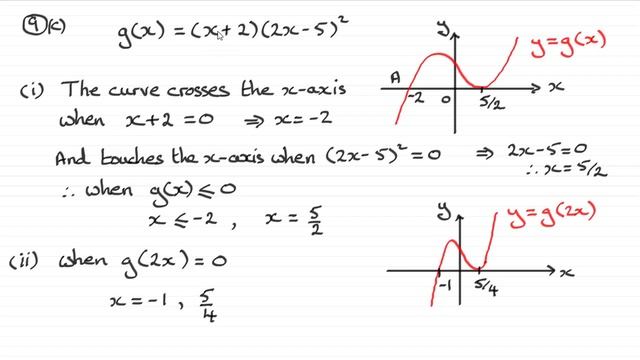 9(c) g(x) = (x+2)(2x-5)²
y
y=g(x)
A
-2 0 5/2 x
(i) The curve crosses the x-axis
when x+2=0 ⇒ x=-2
And touches the x-axis when (2x-5)²=0 ⇒ 2x-5=0
∴ x=5/2
∴ when g(x) ≤ 0
x ≤ -2 , x = 5/2
y
y=g(2x)
-1 5/4 x
(ii) when g(2x) = 0
x = -1 , 5/4